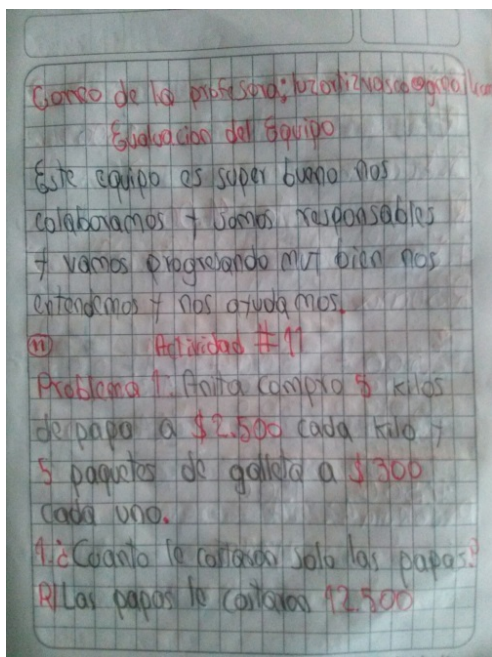 Correo de la profesora;
Evaluacion del Equipo
Este equipo es super bueno nos
colaboramos y somos responsables
y vamos progresando muy bien nos
entendemos y nos ayudamos.
11 Actividad # 11
Problema 1. Anita compro 5 kilos
de papa a $2.500 cada kilo y
5 paquetes de galleta a $300
cada uno.
1. ¿Cuanto le costaron solo las papas?
R/ Las papas le costaron 12.500